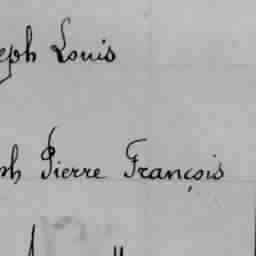 eph Louis
ph Pierre François